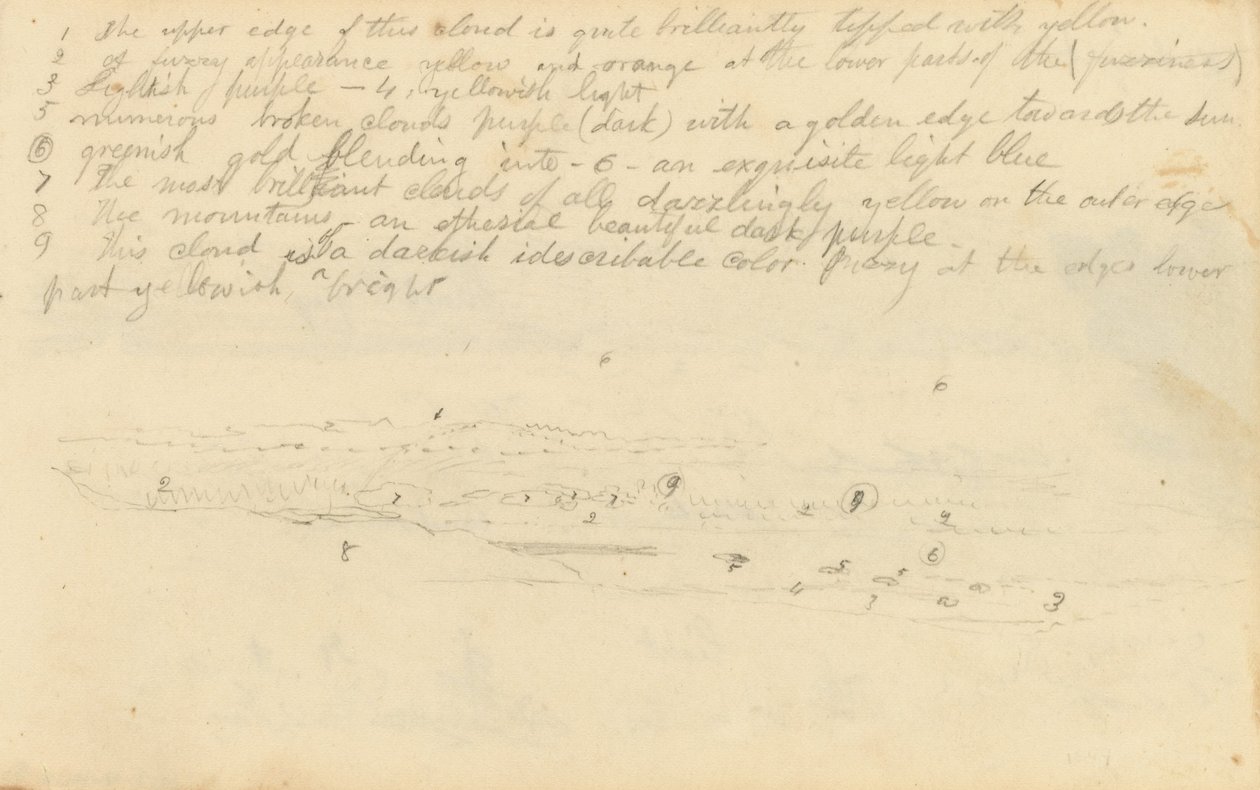 1 The upper edge of this cloud is quite brilliantly tipped with yellow.
2 of fuzzy appearance yellow and orange at the lower parts of the (fuzziness)
3 Lightish purple – 4, yellowish light
5 numerous broken clouds purple (dark) with a golden edge towards the sun.
6 greenish gold blending into – 6 – an exquisite light blue
7 The most brilliant clouds of all dazzlingly yellow on the outer edge
8 The mountains – an etherial beautiful dark purple –
9 This cloud is of a darkish idescribable color. fuzzy at the edges lower
part yellowish, bright
6
6
1
2
2 7 7 7 7 9 9
2 2 2
8 6
5 5 5
4 3 3